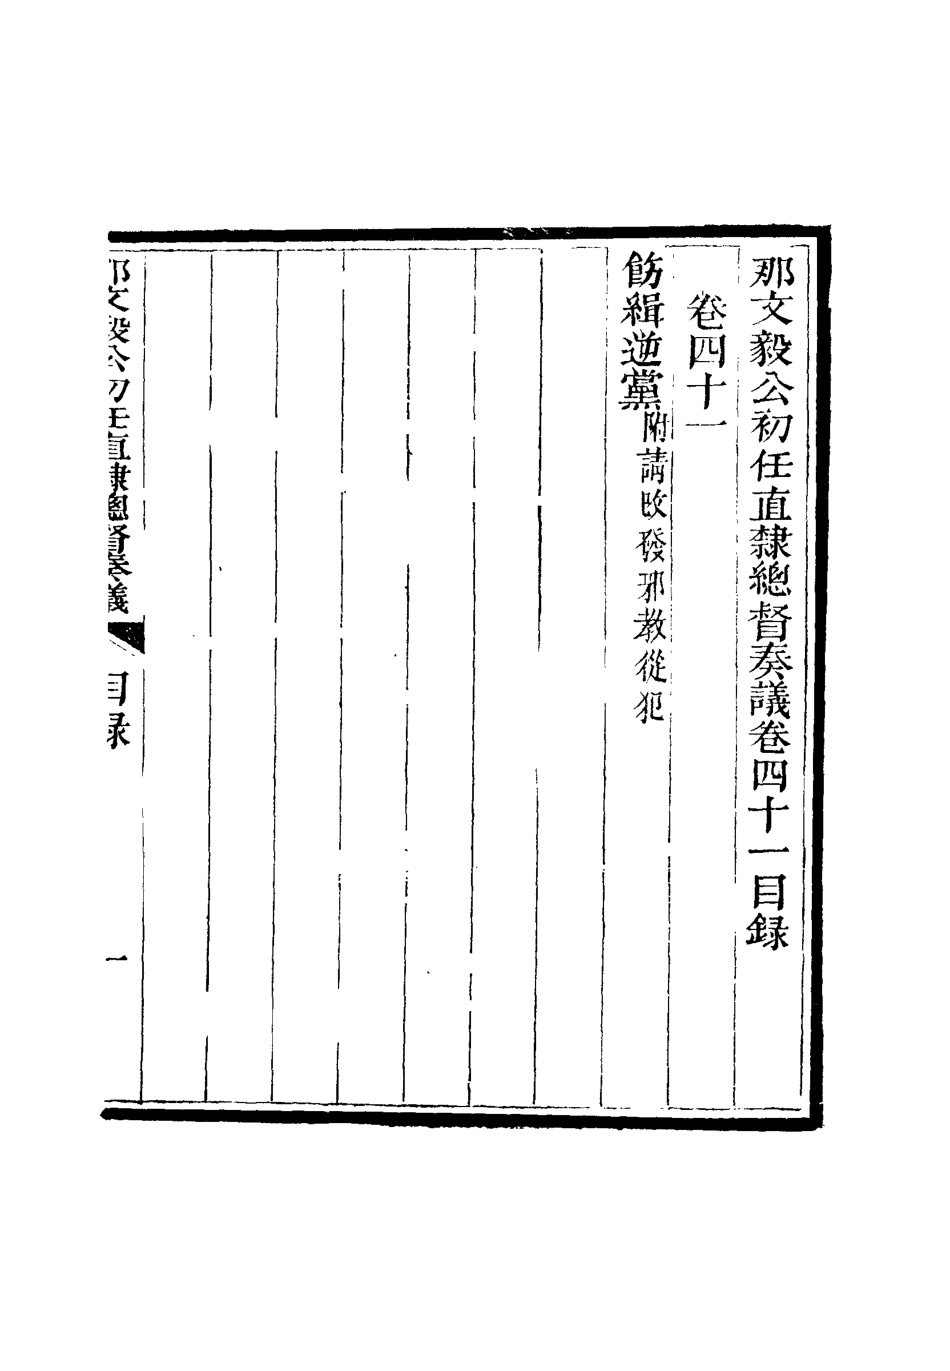 那文毅公初任直隸總督奏議卷四十一目錄
卷四十一
飭緝逆黨附請改發邪教從犯
那文毅公初任直隸總督奏議
目録
一